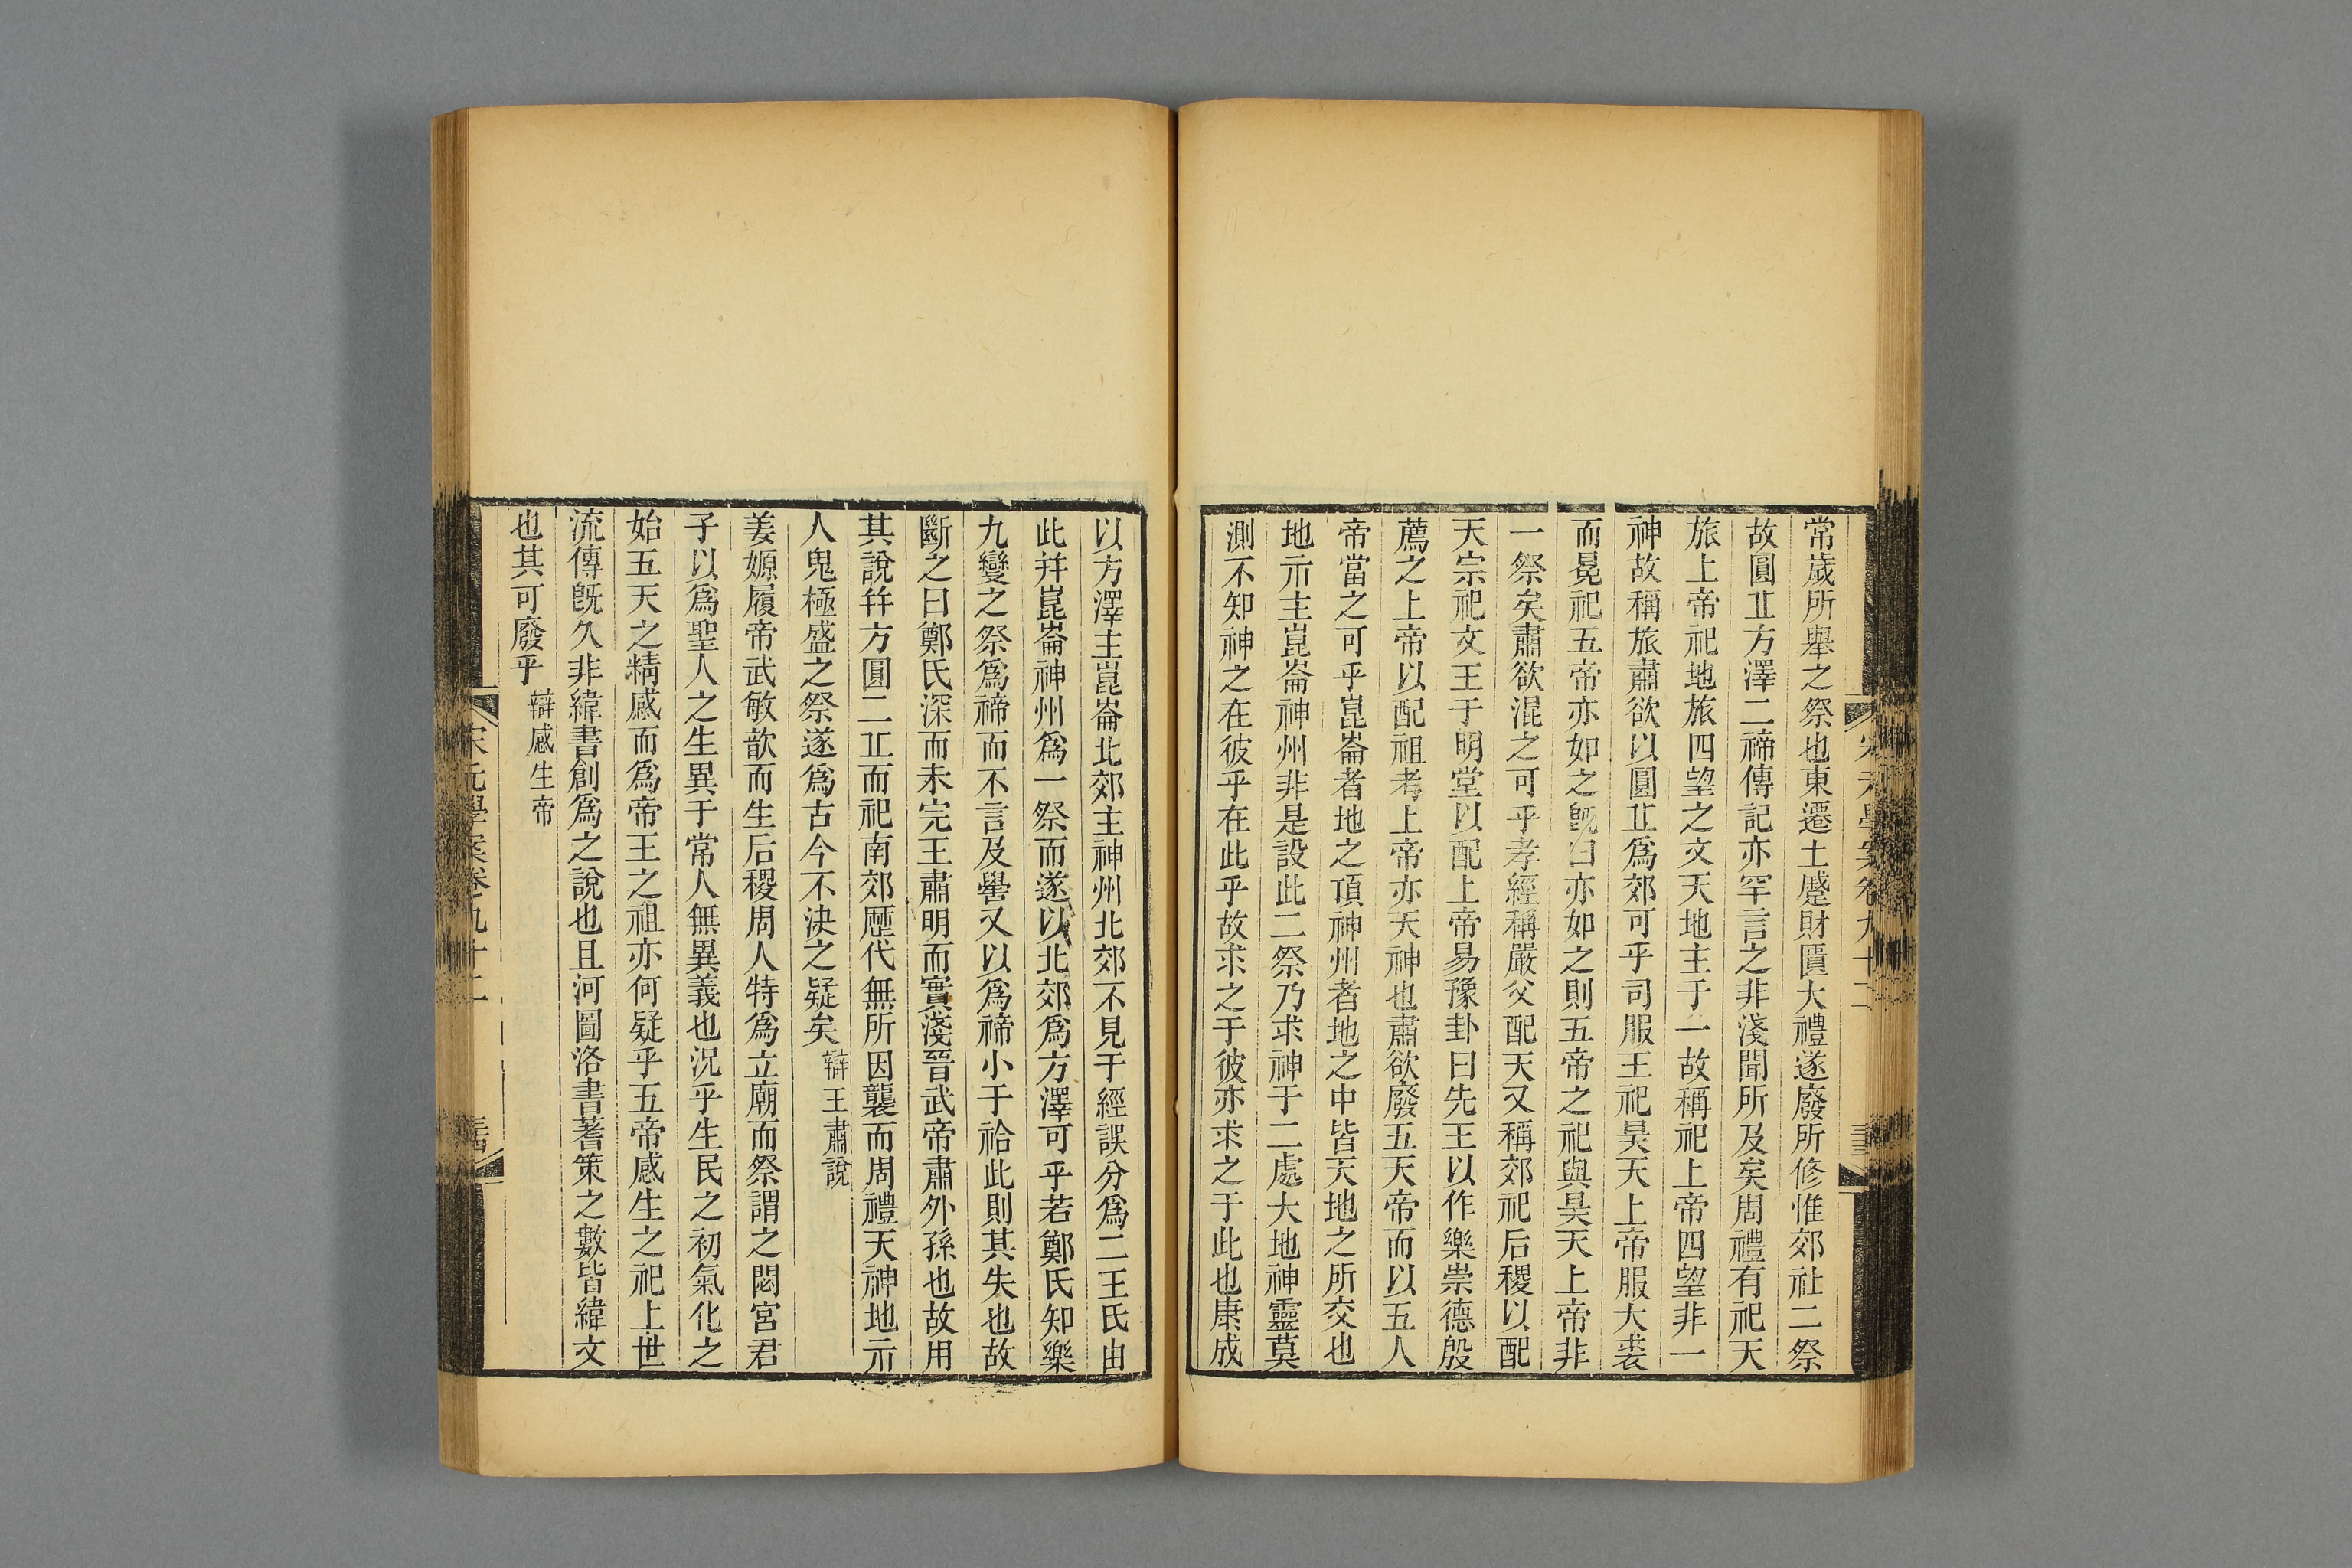 常歲所舉之祭也東遷土蹙財匱大禮遂廢所修惟郊社二祭
故圓丠方澤二禘傳記亦罕言之非淺聞所及矣周禮有祀天
旅上帝祀地旅四望之文天地主于一故稱祀上帝四望非一
神故稱旅肅欲以圓丠爲郊可乎司服王祀昊天上帝服大裘
而冕祀五帝亦如之旣曰亦如之則五帝之祀與昊天上帝非
一祭矣肅欲混之可乎孝經稱嚴父配天又稱郊祀后稷以配
天宗祀文王于明堂以配上帝易豫卦曰先王以作樂崇德殷
薦之上帝以配祖考上帝亦天神也肅欲廢五天帝而以五人
帝當之可乎崑崙者地之頂神州者地之中皆天地之所交也
地示主崑崙神州非是設此二祭乃求神于二處大地神靈莫
測不知神之在彼乎在此乎故求之于彼亦求之于此也康成
以方澤主崑崙北郊主神州北郊不見于經誤分爲二王氏由
此幷崑崙神州爲一祭而遂以北郊爲方澤可乎若鄭氏知樂
九變之祭爲禘而不言及嚳又以爲禘小于祫此則其失也故
斷之曰鄭氏深而未完王肅明而實淺晉武帝肅外孫也故用
其說幷方圓二丠而祀南郊歷代無所因襲而周禮天神地示
人鬼極盛之祭遂爲古今不決之疑矣 辯王肅說
姜嫄履帝武敏歆而生后稷周人特爲立廟而祭謂之閟宮君
子以爲聖人之生異于常人無異義也況乎生民之初氣化之
始五天之精感而爲帝王之祖亦何疑乎五帝感生之祀上世
流傳旣久非緯書創爲之說也且河圖洛書蓍策之數皆緯文
也其可廢乎 辯感生帝
宋元學案卷九十二